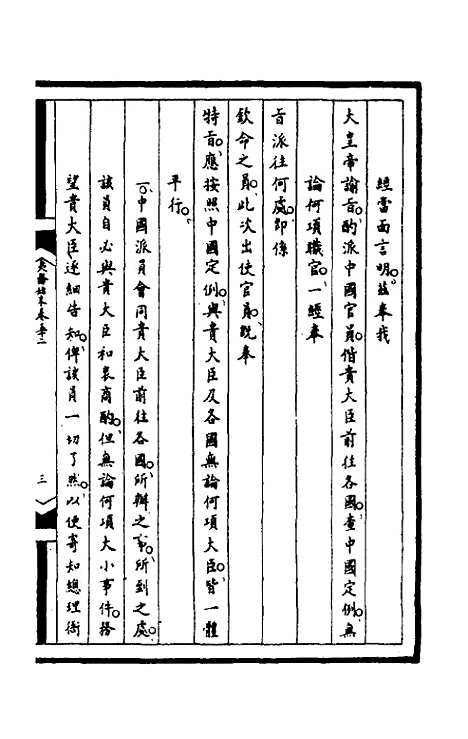 經當面言明。茲奉我
大皇帝諭旨。酌派中國官員。偕貴大臣前往各國。查中國定例。無
論何項職官。一經奉
旨派往何處。即係
欽命之員。此次出使官員。既奉
特旨。應按照中國定例。與貴大臣及各國無論何項大臣。皆一體
平行。
一、中國派員會同貴大臣前往各國。所辦之事。所到之處。
該員自必與貴大臣和衷商酌。但無論何項大小事件。務
望貴大臣逐細告知。俾該員一切了然。以便寄知總理衙
夷務始末卷五二
三